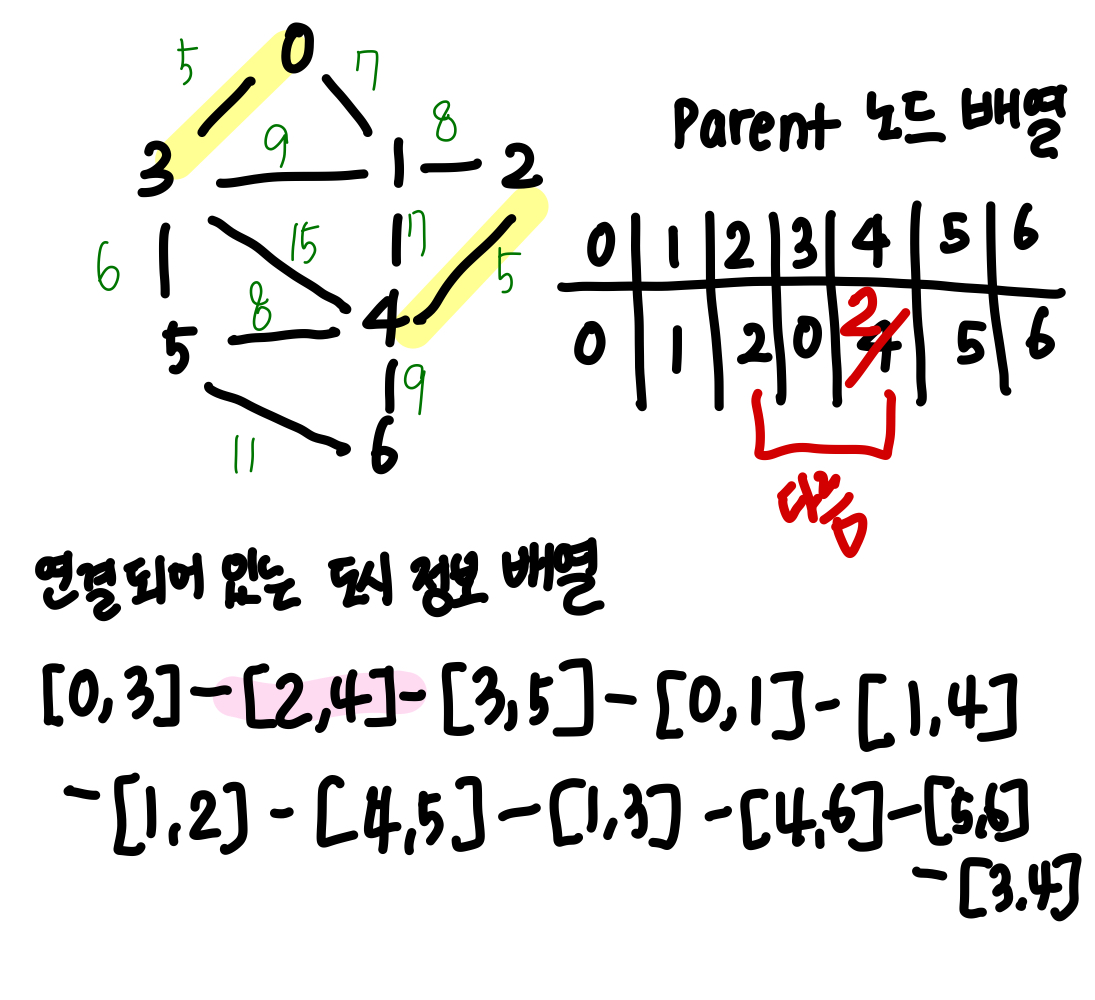 0
5
7
3
9
1
8
2
6
15
7
5
8
5
4
9
11
6
Parent 노드 배열
0 1 2 3 4 5 6
2
0 1 2 0 4 5 6
다름
연결되어 있는 도시 정보 배열
[0,3]-[2,4]-[3,5]-[0,1]-[1,4]
-[1,2]-[4,5]-[1,3]-[4,6]-[5,6]
-[3.4]